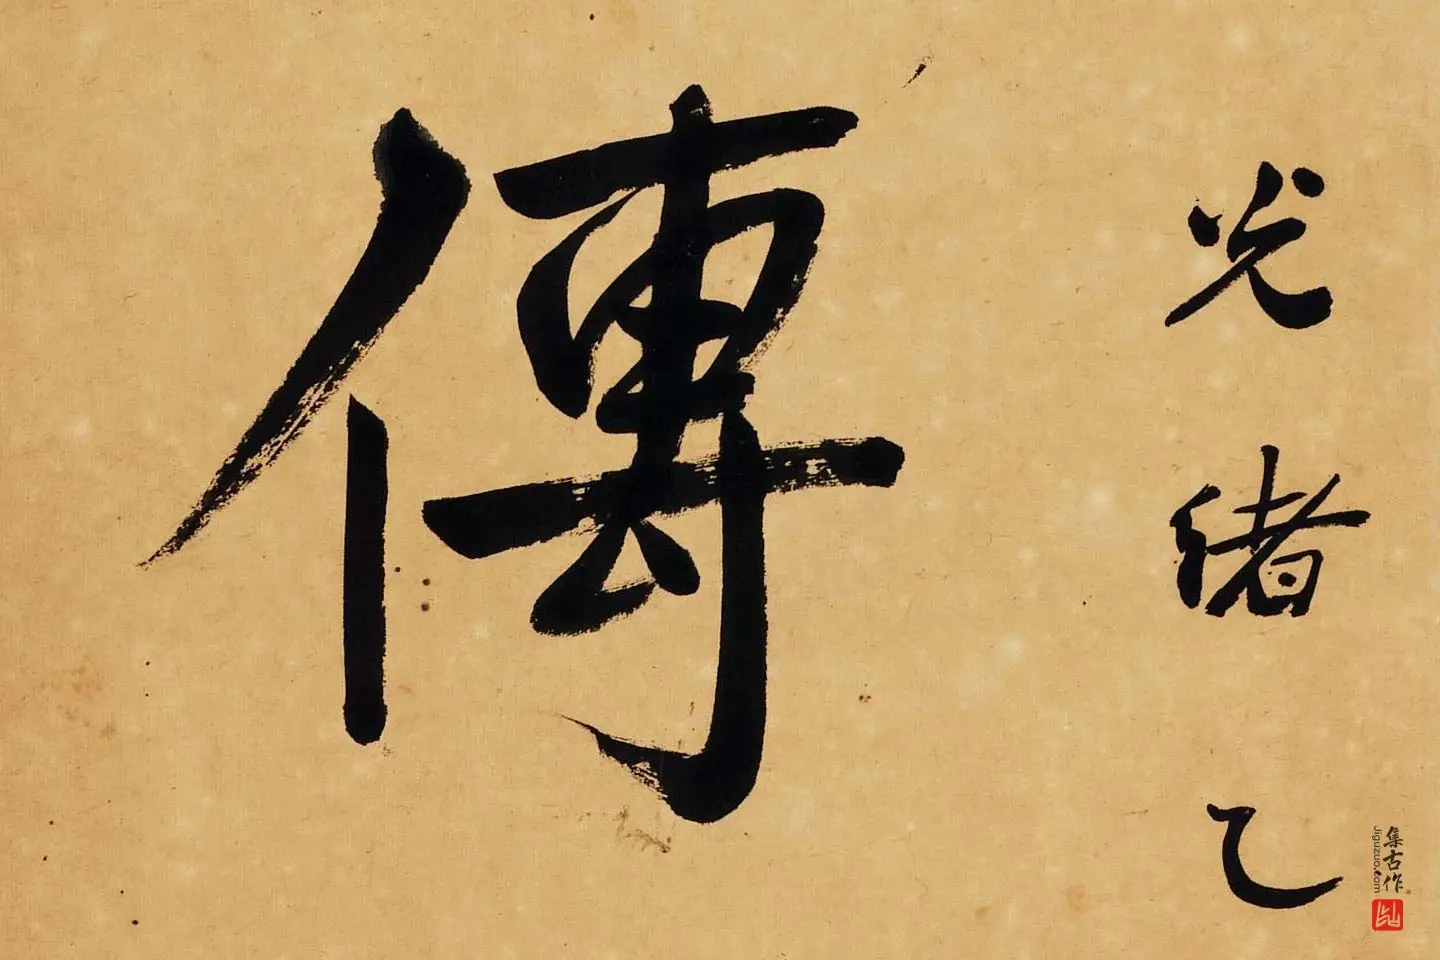 光緒乙
傳
集古作
Jiguzuo.com